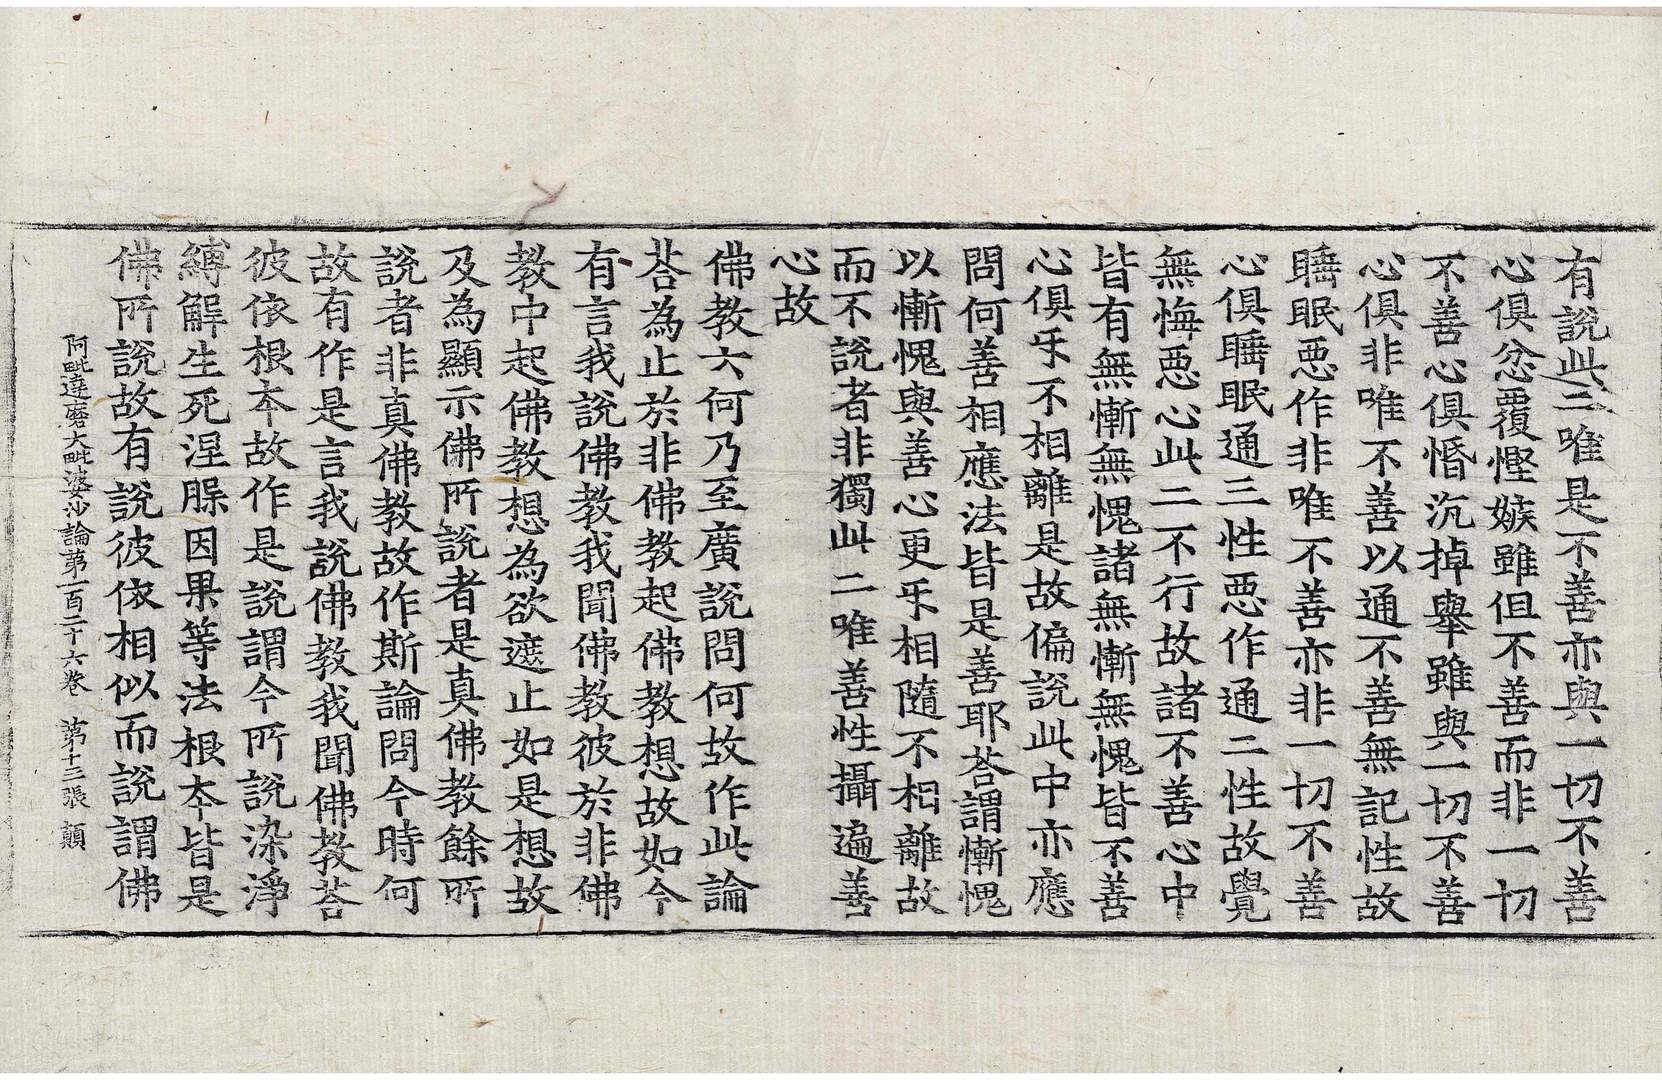 有說此二唯是不善亦與一切不善
心俱忿覆慳嫉雖但不善而非一切
不善心俱惛沉掉舉雖與一切不善
心俱非唯不善以通不善無記性故
睡眠惡作非唯不善亦非一切不善
心俱睡眠通三性惡作通二性故覺
無悔惡心此二不行故諸不善心中
皆有無慚無愧諸無慚無愧皆不善
心俱乐不相離是故偏說此中亦應
問何善相應法皆是善耶荅謂慚愧
以慚愧與善心更乐相隨不相離故
而不說者非獨此二唯善性攝遍善
心故
佛教六何乃至廣說問何故作此論
荅為止於非佛教起佛教想故如今
有言我說佛教我聞佛教彼於非佛
教中起佛教想為欲遮止如是想故
及為顯示佛所說者是真佛教餘所
說者非真佛教故作斯論問今時何
故有作是言我說佛教我聞佛教荅
彼依根本故作是說謂今所說染淨
縛解生死涅槃因果等法根本皆是
佛所說故有說彼依相似而說謂佛
阿毗達磨大毗婆沙論第一百二十六卷　第十三張　顛